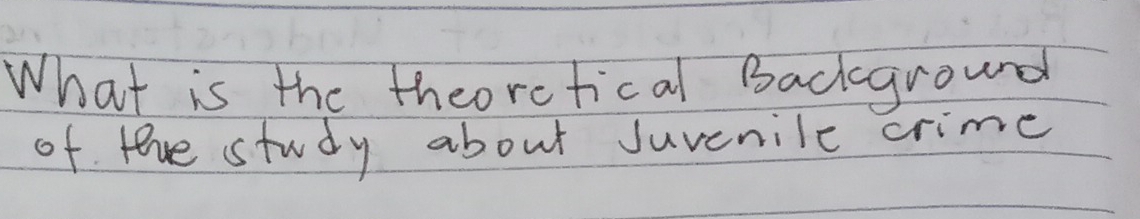 What is the theoretical Background
of the study about Juvenile crime